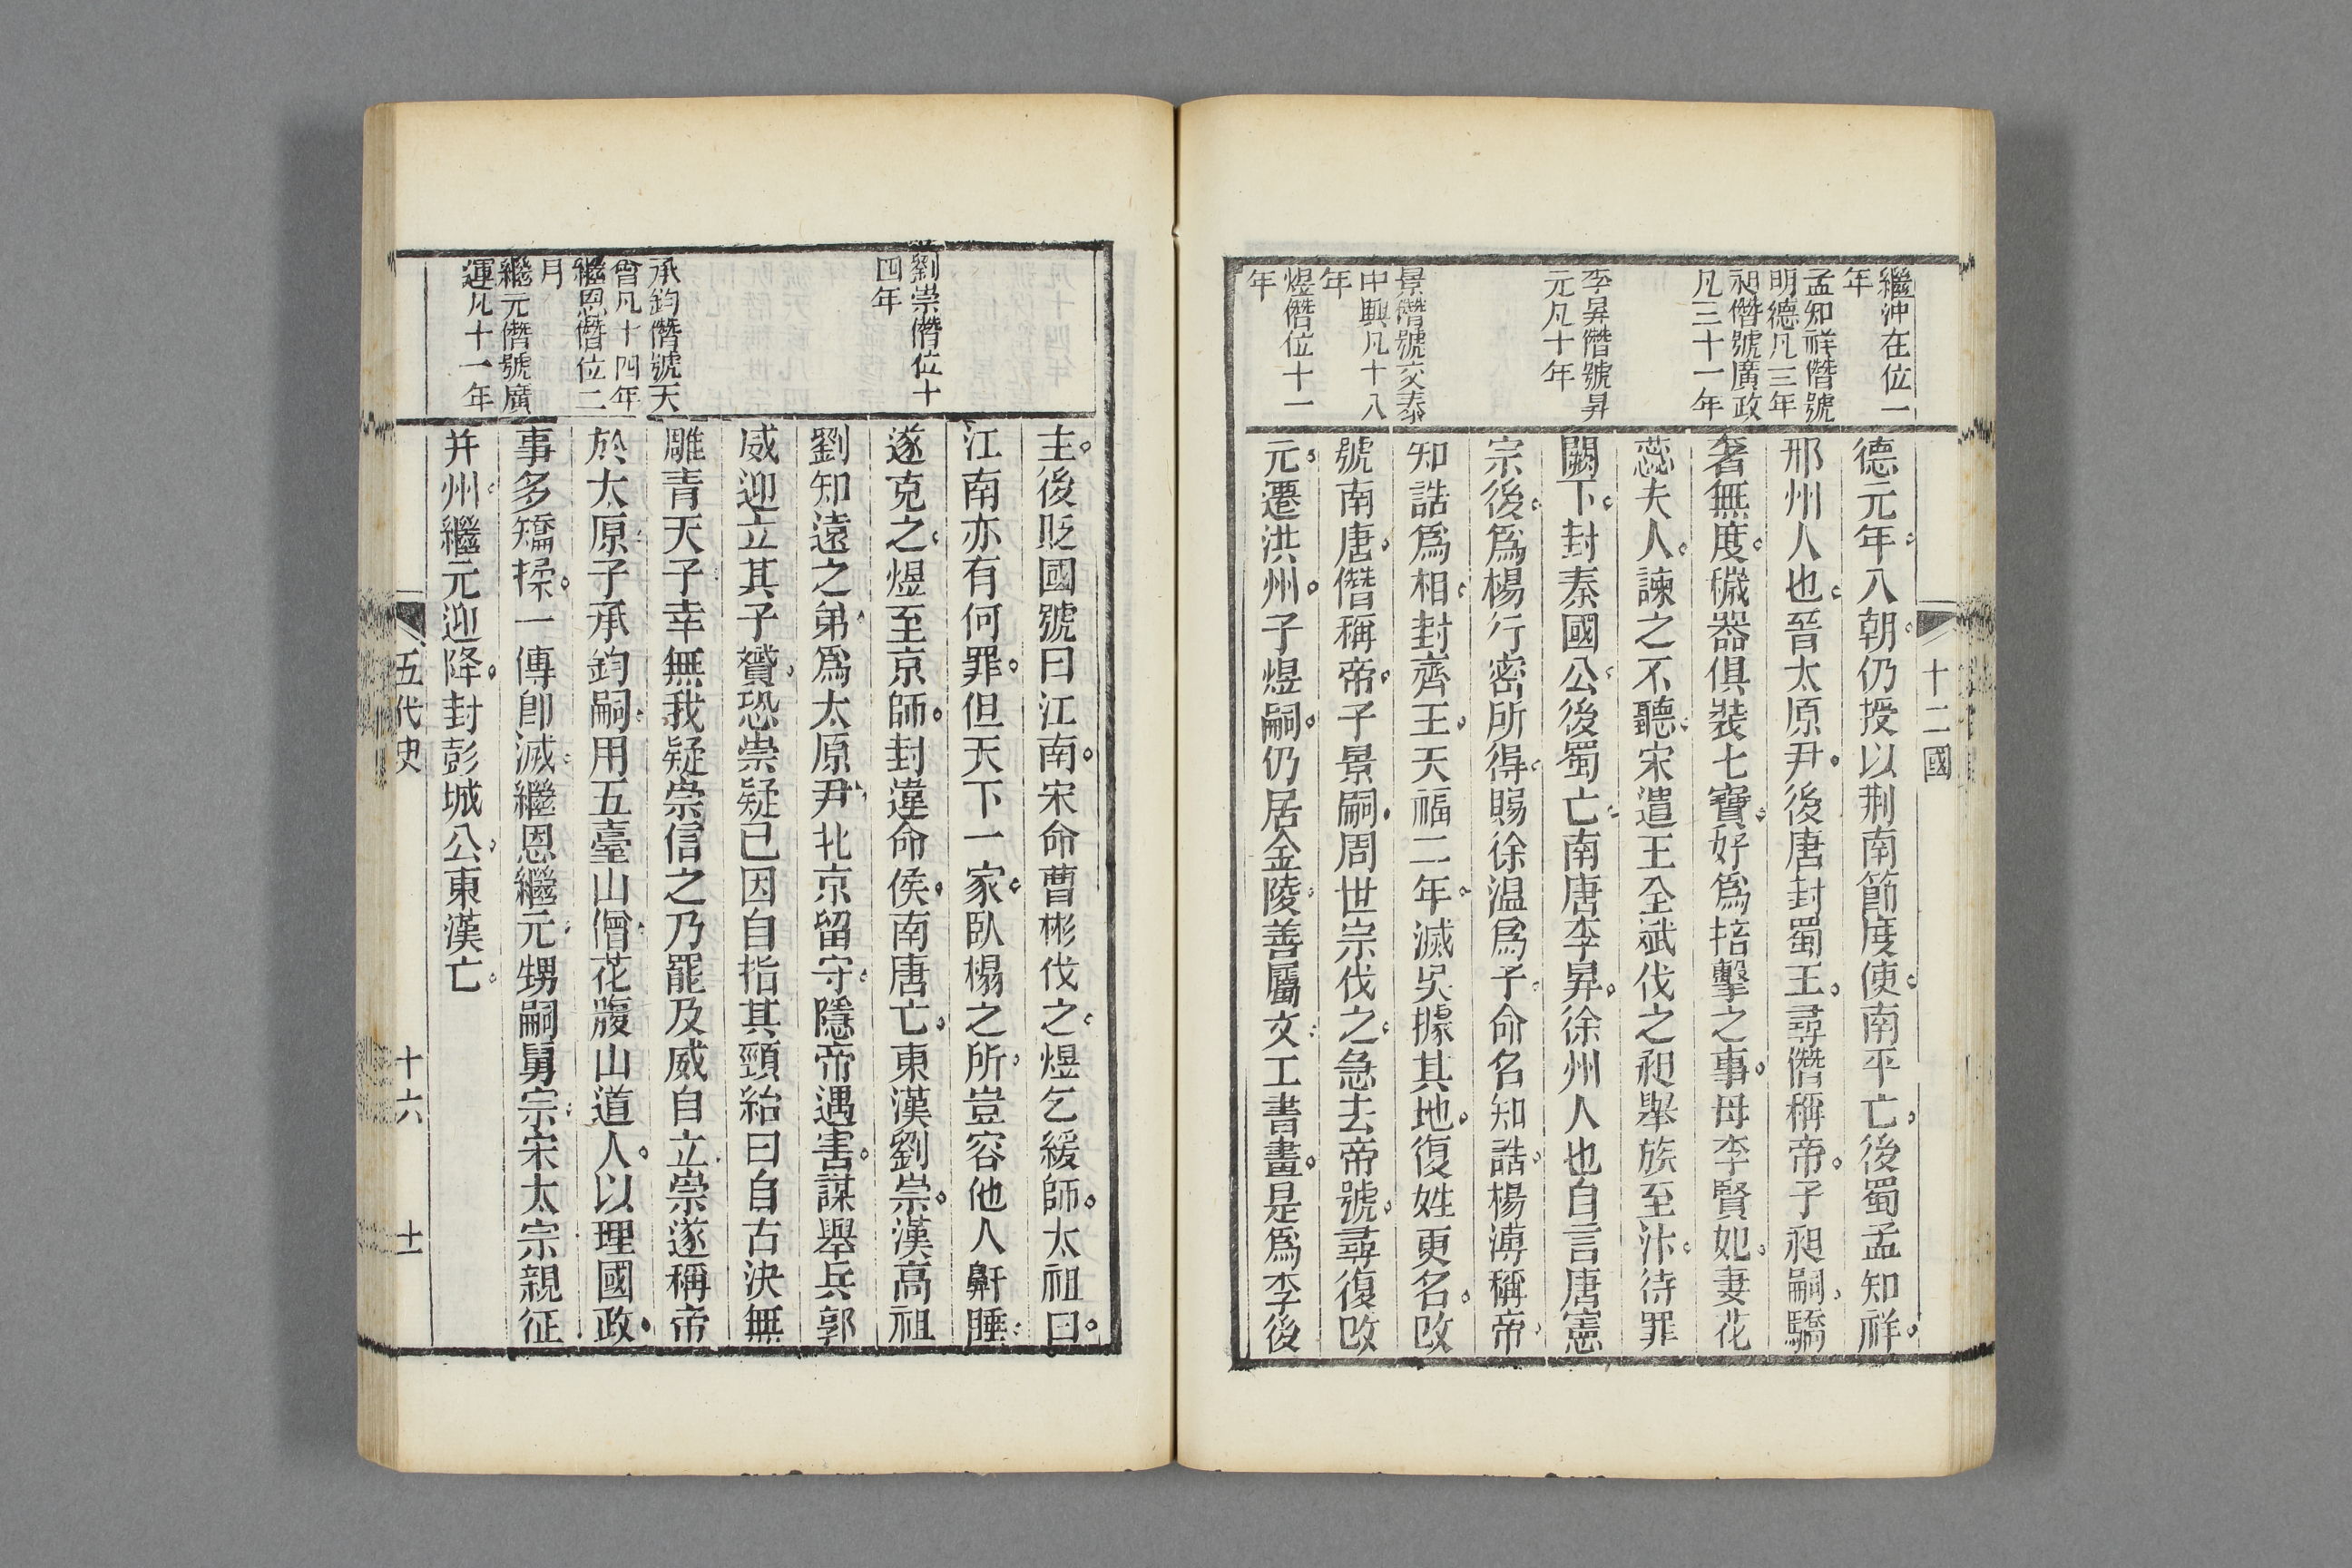 十二國
繼沖在位一
年
孟知祥僭號
明德凡三年
昶僭號廣政
凡三十一年
李昇僭號昇
元凡十年
景僭號交泰
中興凡十八
年
煜僭位十一
年
德元年入朝仍授以荆南節度使南平亡後蜀孟知祥
邢州人也晉太原尹後唐封蜀王尋僭稱帝子昶嗣驕
奢無度穢器俱裝七寶好爲掊擊之事母李賢妃妻花
蕊夫人諫之不聽宋遣王全斌伐之昶舉族至汴待罪
闕下封秦國公後蜀亡南唐李昇徐州人也自言唐憲
宗後爲楊行密所得賜徐温爲子命名知誥楊溥稱帝
知誥爲相封齊王天福二年滅吳據其地復姓更名改
號南唐僭稱帝子景嗣周世宗伐之急去帝號尋復改
元遷洪州子煜嗣仍居金陵善屬文工書畫是爲李後
劉崇僭位十
四年
承鈞僭號天
會凡十四年
繼恩僭位二
月
繼元僭號廣
運凡十一年
主後貶國號曰江南宋命曹彬伐之煜乞緩師太祖曰
江南亦有何罪但天下一家臥榻之所豈容他人鼾睡
遂克之煜至京師封違命侯南唐亡東漢劉崇漢高祖
劉知遠之弟爲太原尹北京留守隱帝遇害謀舉兵郭
威迎立其子贇恐崇疑已因自指其頸紿曰自古決無
雕青天子幸無我疑崇信之乃罷及威自立崇遂稱帝
於太原子承鈞嗣用五臺山僧花腹山道人以理國政
事多矯揉一傳卽滅繼恩繼元甥嗣舅宗宋太宗親征
并州繼元迎降封彭城公東漢亡
五代史 十六 十一